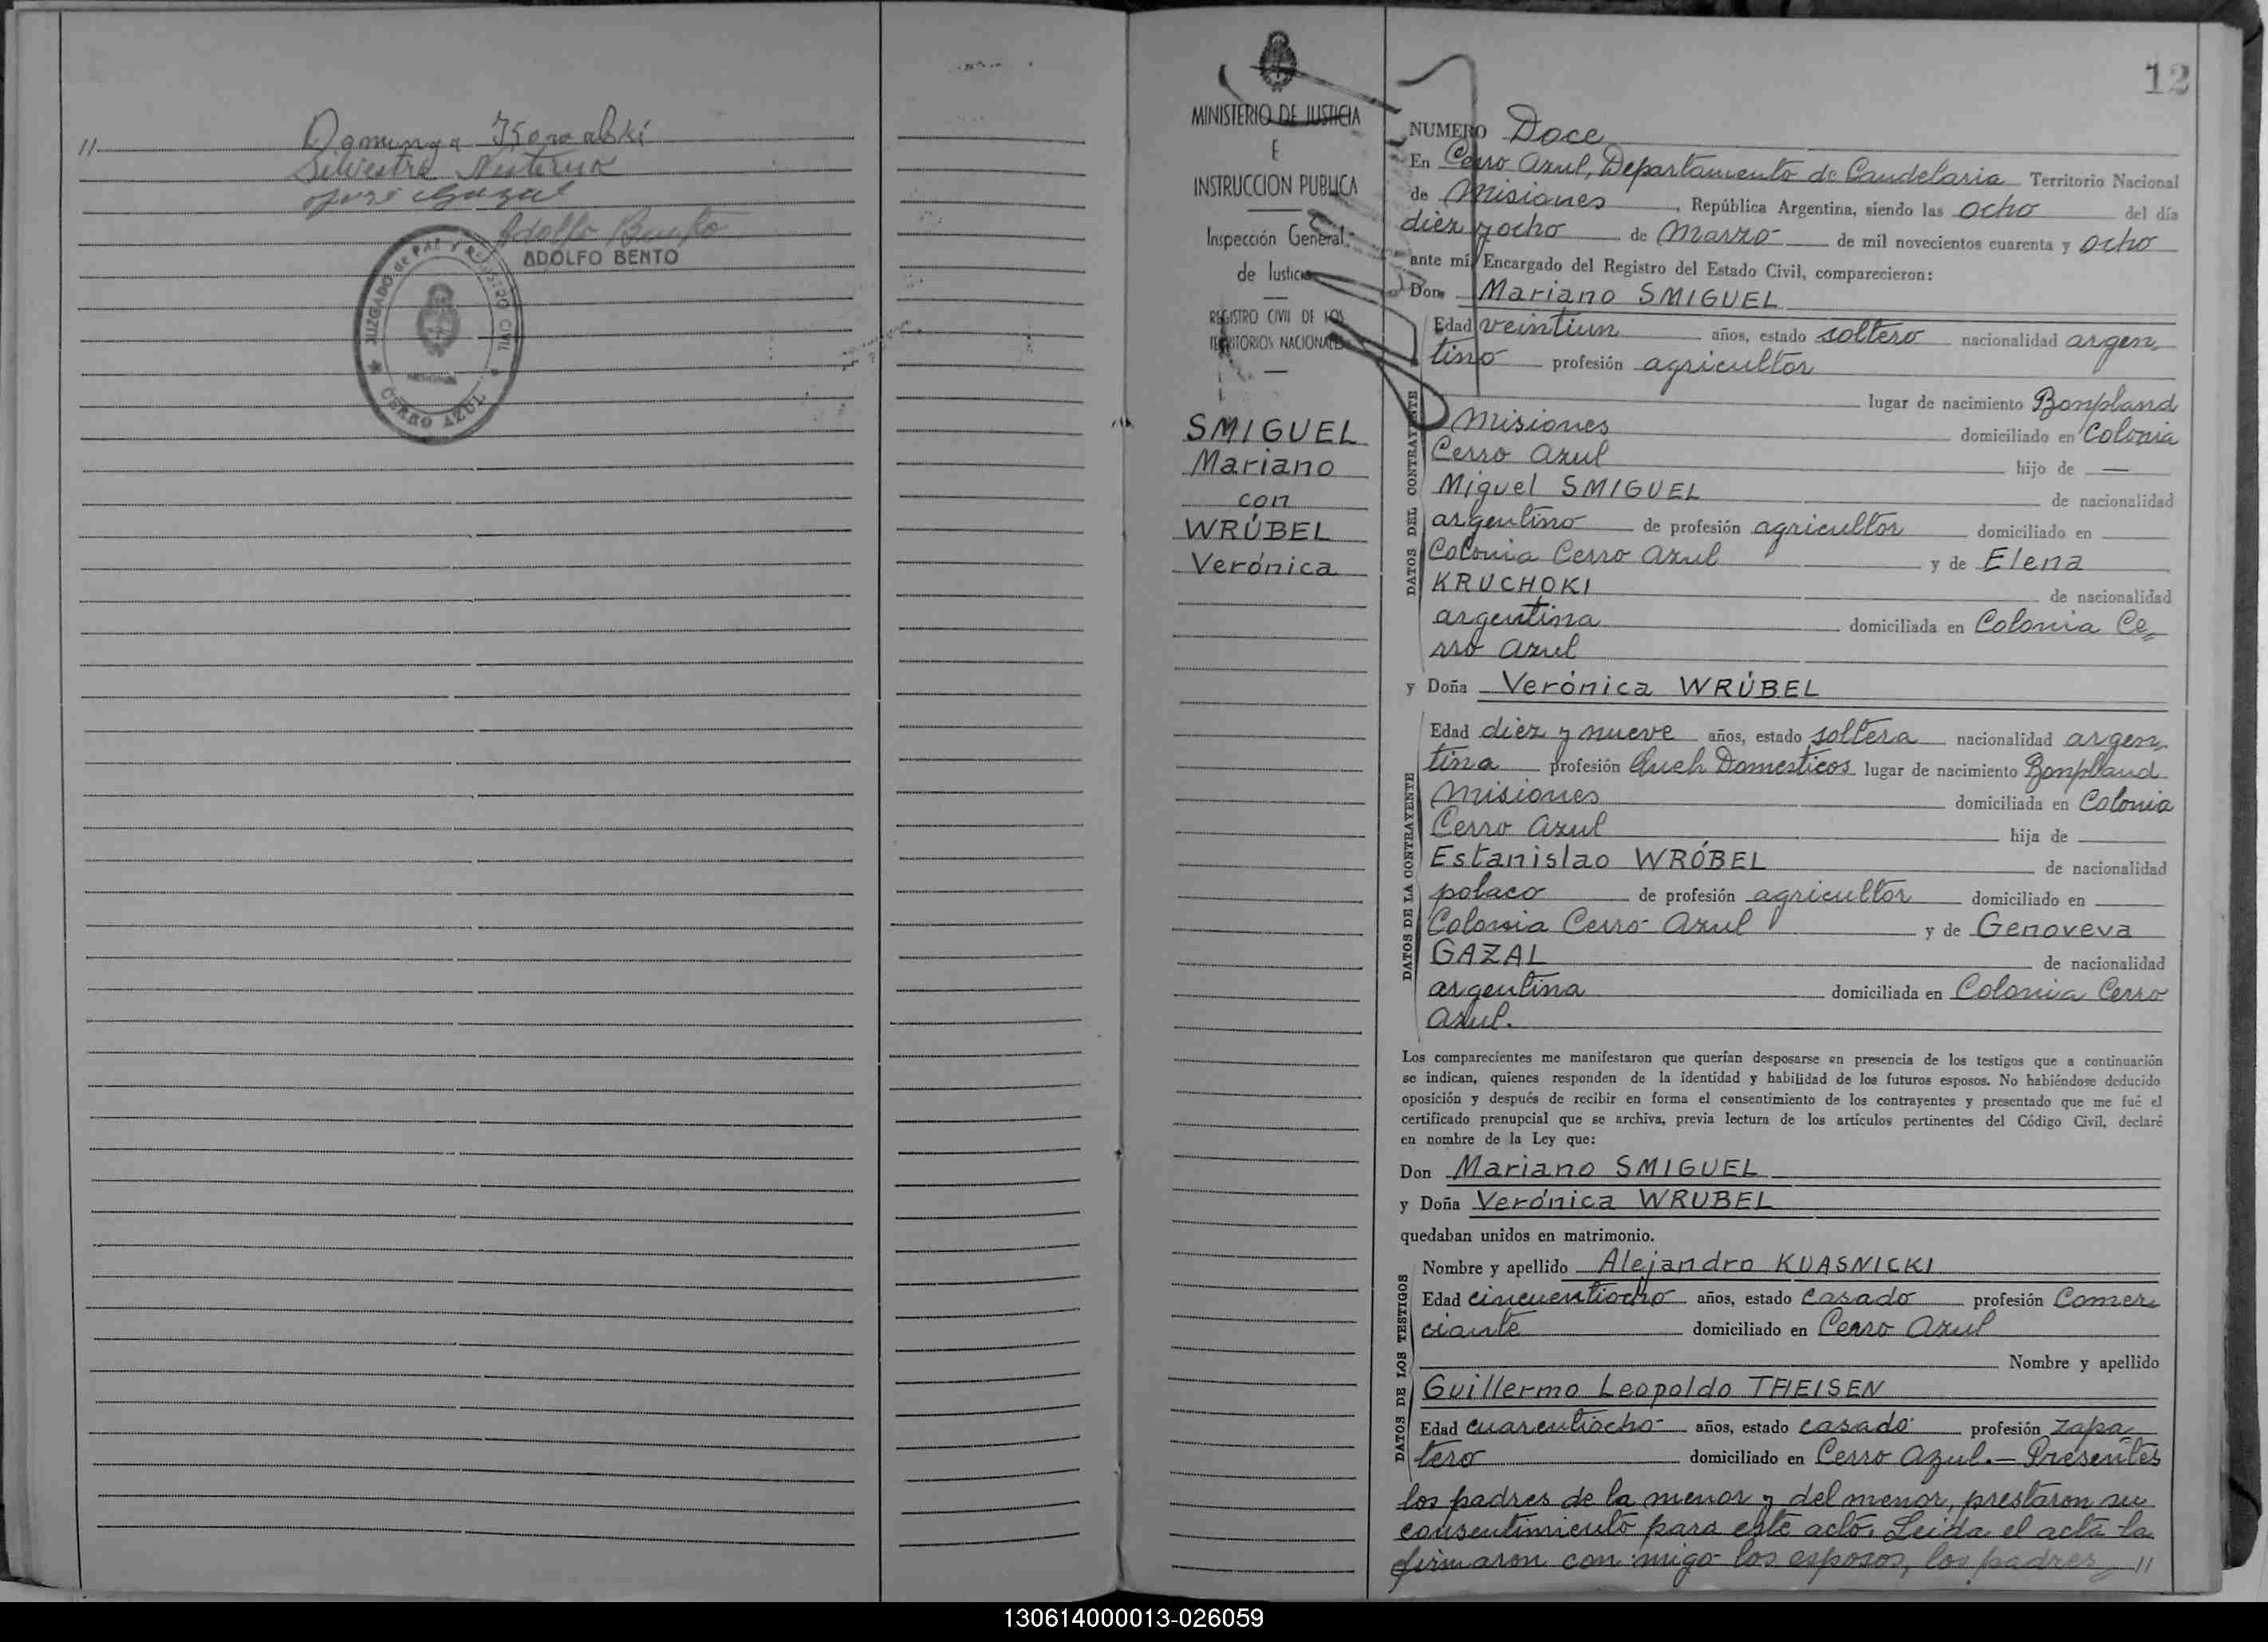 // Dominga Kowalski
Silvestre
José Gazal
Adolfo Bento
ADOLFO BENTO
JUZGADO de PAZ Y REGISTRO CIVIL
MISIONES
CERRO AZUL
MINISTERIO DE JUSTICIA
E
INSTRUCCION PUBLICA
Inspección General
de Justicia
REGISTRO CIVIL DE LOS
TERRITORIOS NACIONALES
SMIGUEL
Mariano
con
WRÚBEL
Verónica
12
NUMERO Doce
En Cerro Azul, Departamento de Candelaria Territorio Nacional
de Misiones, República Argentina, siendo las ocho del día
diez y ocho de Marzo de mil novecientos cuarenta y ocho
ante mí, Encargado del Registro del Estado Civil, comparecieron:
Don Mariano SMIGUEL
DATOS DEL CONTRAYENTE
Edad veintiun años, estado soltero nacionalidad argen-
tino profesión agricultor
lugar de nacimiento Bonpland
Misiones domiciliado en Colonia
Cerro Azul hijo de —
Miguel SMIGUEL de nacionalidad
argentino de profesión agricultor domiciliado en
Colonia Cerro Azul y de Elena
KRUCHOKI de nacionalidad
argentina domiciliada en Colonia Ce=
rro Azul
y Doña Verónica WRÚBEL
DATOS DE LA CONTRAYENTE
Edad diez y nueve años, estado soltera nacionalidad argen-
tina profesión Queh Domesticos lugar de nacimiento Bonpland
Misiones domiciliada en Colonia
Cerro Azul hija de
Estanislao WRÓBEL de nacionalidad
polaco de profesión agricultor domiciliado en
Colonia Cerro Azul y de Genoveva
GAZAL de nacionalidad
argentina domiciliada en Colonia Cerro
Azul.
Los comparecientes me manifestaron que querían desposarse en presencia de los testigos que a continuación
se indican, quienes responden de la identidad y habilidad de los futuros esposos. No habiéndose deducido
oposición y después de recibir en forma el consentimiento de los contrayentes y presentado que me fué el
certificado prenupcial que se archiva, previa lectura de los artículos pertinentes del Código Civil, declaré
en nombre de la Ley que:
Don Mariano SMIGUEL
y Doña Verónica WRUBEL
quedaban unidos en matrimonio.
DATOS DE LOS TESTIGOS
Nombre y apellido Alejandro KUASNICKI
Edad cincuentiocho años, estado casado profesión Comer-
ciante domiciliado en Cerro Azul
Nombre y apellido
Guillermo Leopoldo THEISEN
Edad cuarentiocho años, estado casado profesión zapa-
tero domiciliado en Cerro Azul.— Presentes
los padres de la menor y del menor, prestaron su
consentimiento para este acto. Leida el acta la
firmaron con migo los esposos, los padres //
130614000013-026059